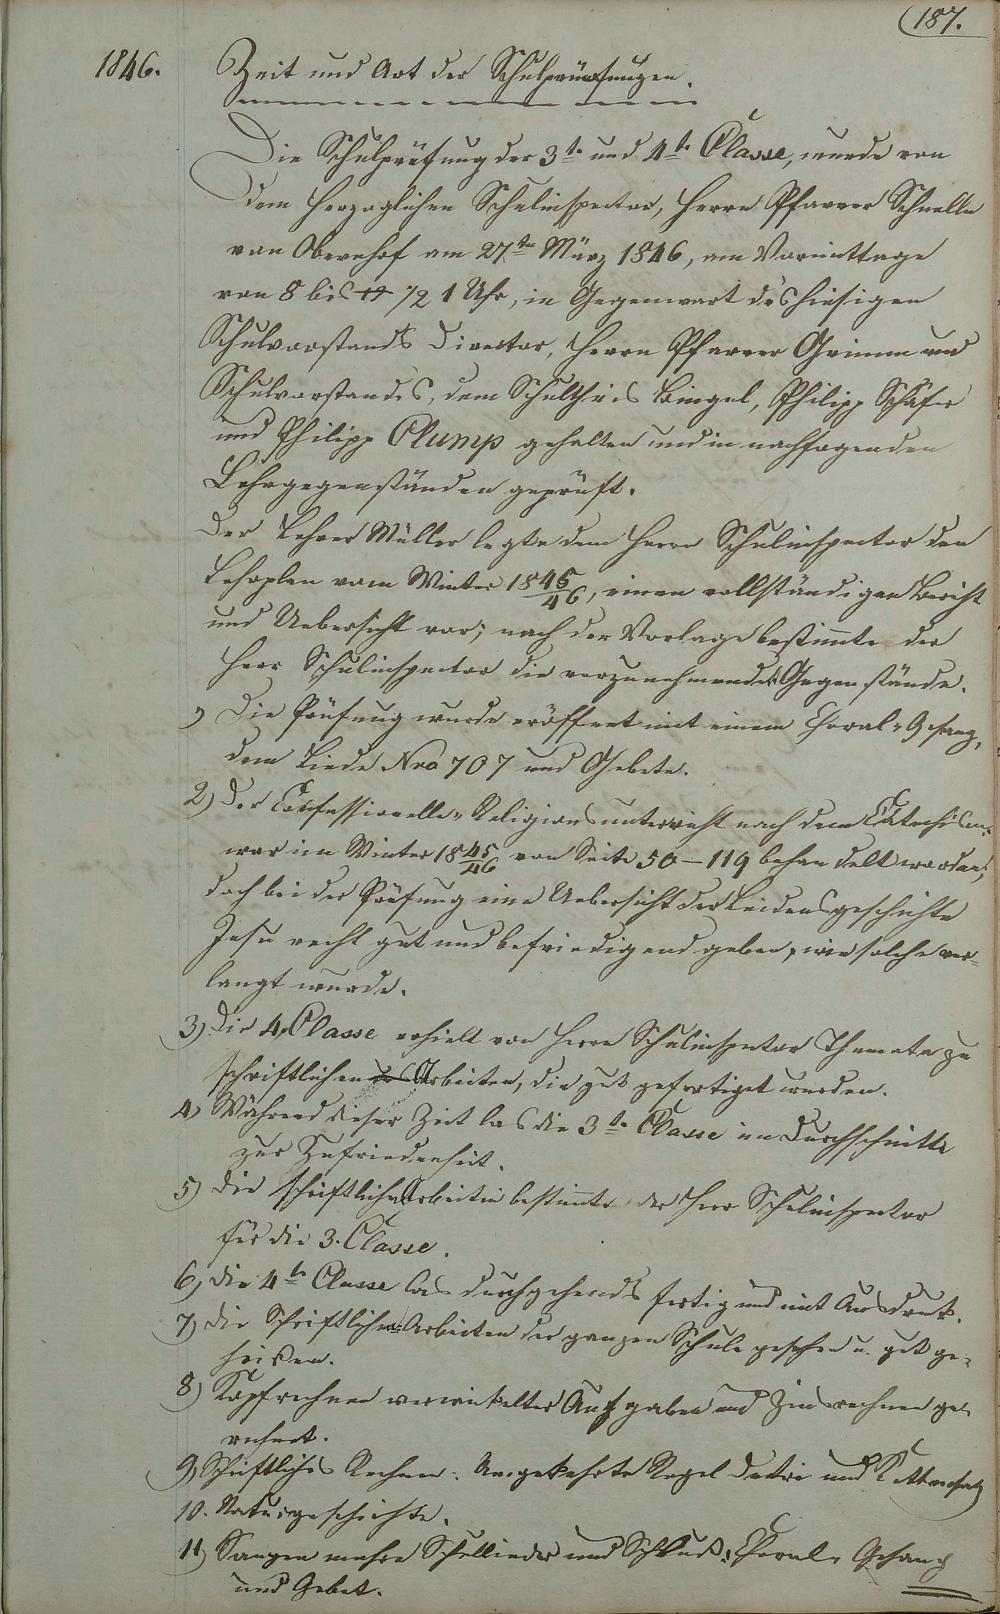 187.
1846. Zeit und Art der Schulprüfungen.
Die Schulprüfung der 3te und 4te Classe, wurde von
dem Herzoglichen Schulinspector, Herrn Pfarrer Schnelle
von Obernhof am 27ten März 1846, am Vormittage
von 8 bis 1/2 1 Uhr, in Gegenwart des hiesigen
Schulvorstands Director, Herrn Pfarrer Grimm und
Schulvorstandes, dem Schultheis Bingel, Philipp Schäfer
und Philipp Clump gehalten und in nachfogenden
Lehrgegenständen geprüft.
Der Lehrer Müller legte dem Herrn Schulinspector den
Lehrplan vom Winter 1845/46, einen vollständigen Bericht
und Uebersicht vor; nach der Vorlage bestimte der
Herr Schulinspector die vorzunehmende Gegenstände.
1) Die Prüfung wurde eröffnet mit einem Choral-Gesang,
dem Liede Nro 707 und Gebete.
2) Der Confessionelle-Religionsunterricht nach dem Catechism:
war im Winter 1845/46 von Seite 50-119 behandelt worden;
doch bei der Prüfung eine Uebersicht der Leidensgeschichte
Jesu recht gut und befriedigend geben, wie solche ver=
langt wurde.
3) Die 4. Classe erhielt von Herrn Schulinspector Themata zu
schriftlichen Arbeiten, die gut gefertiget wurden.
4) Während dieser Zeit las die 3te Classe im Durchschnitte
zur Zufriedenheit.
5) Die schriftliche Arbeiten bestimte der Herr Schulinspector
für die 3. Classe.
6) Die 4te Classe las durchgehends fertig und mit Ausdruck.
7) Die Schriftlichen Arbeiten der ganzen Schule gesehen u. gut ge=
heißen.
8) Kopfrechnen verwickelter Aufgaben und Zinsrechnen ge=
rechnet.
9) Schriftliches Rechnen: Umgekehrte Regel Detri und Kettensatz
10. Naturgeschichte.
11) Sangen mehre Schullieder und Schluß: Choral-Gesang
und Gebet.